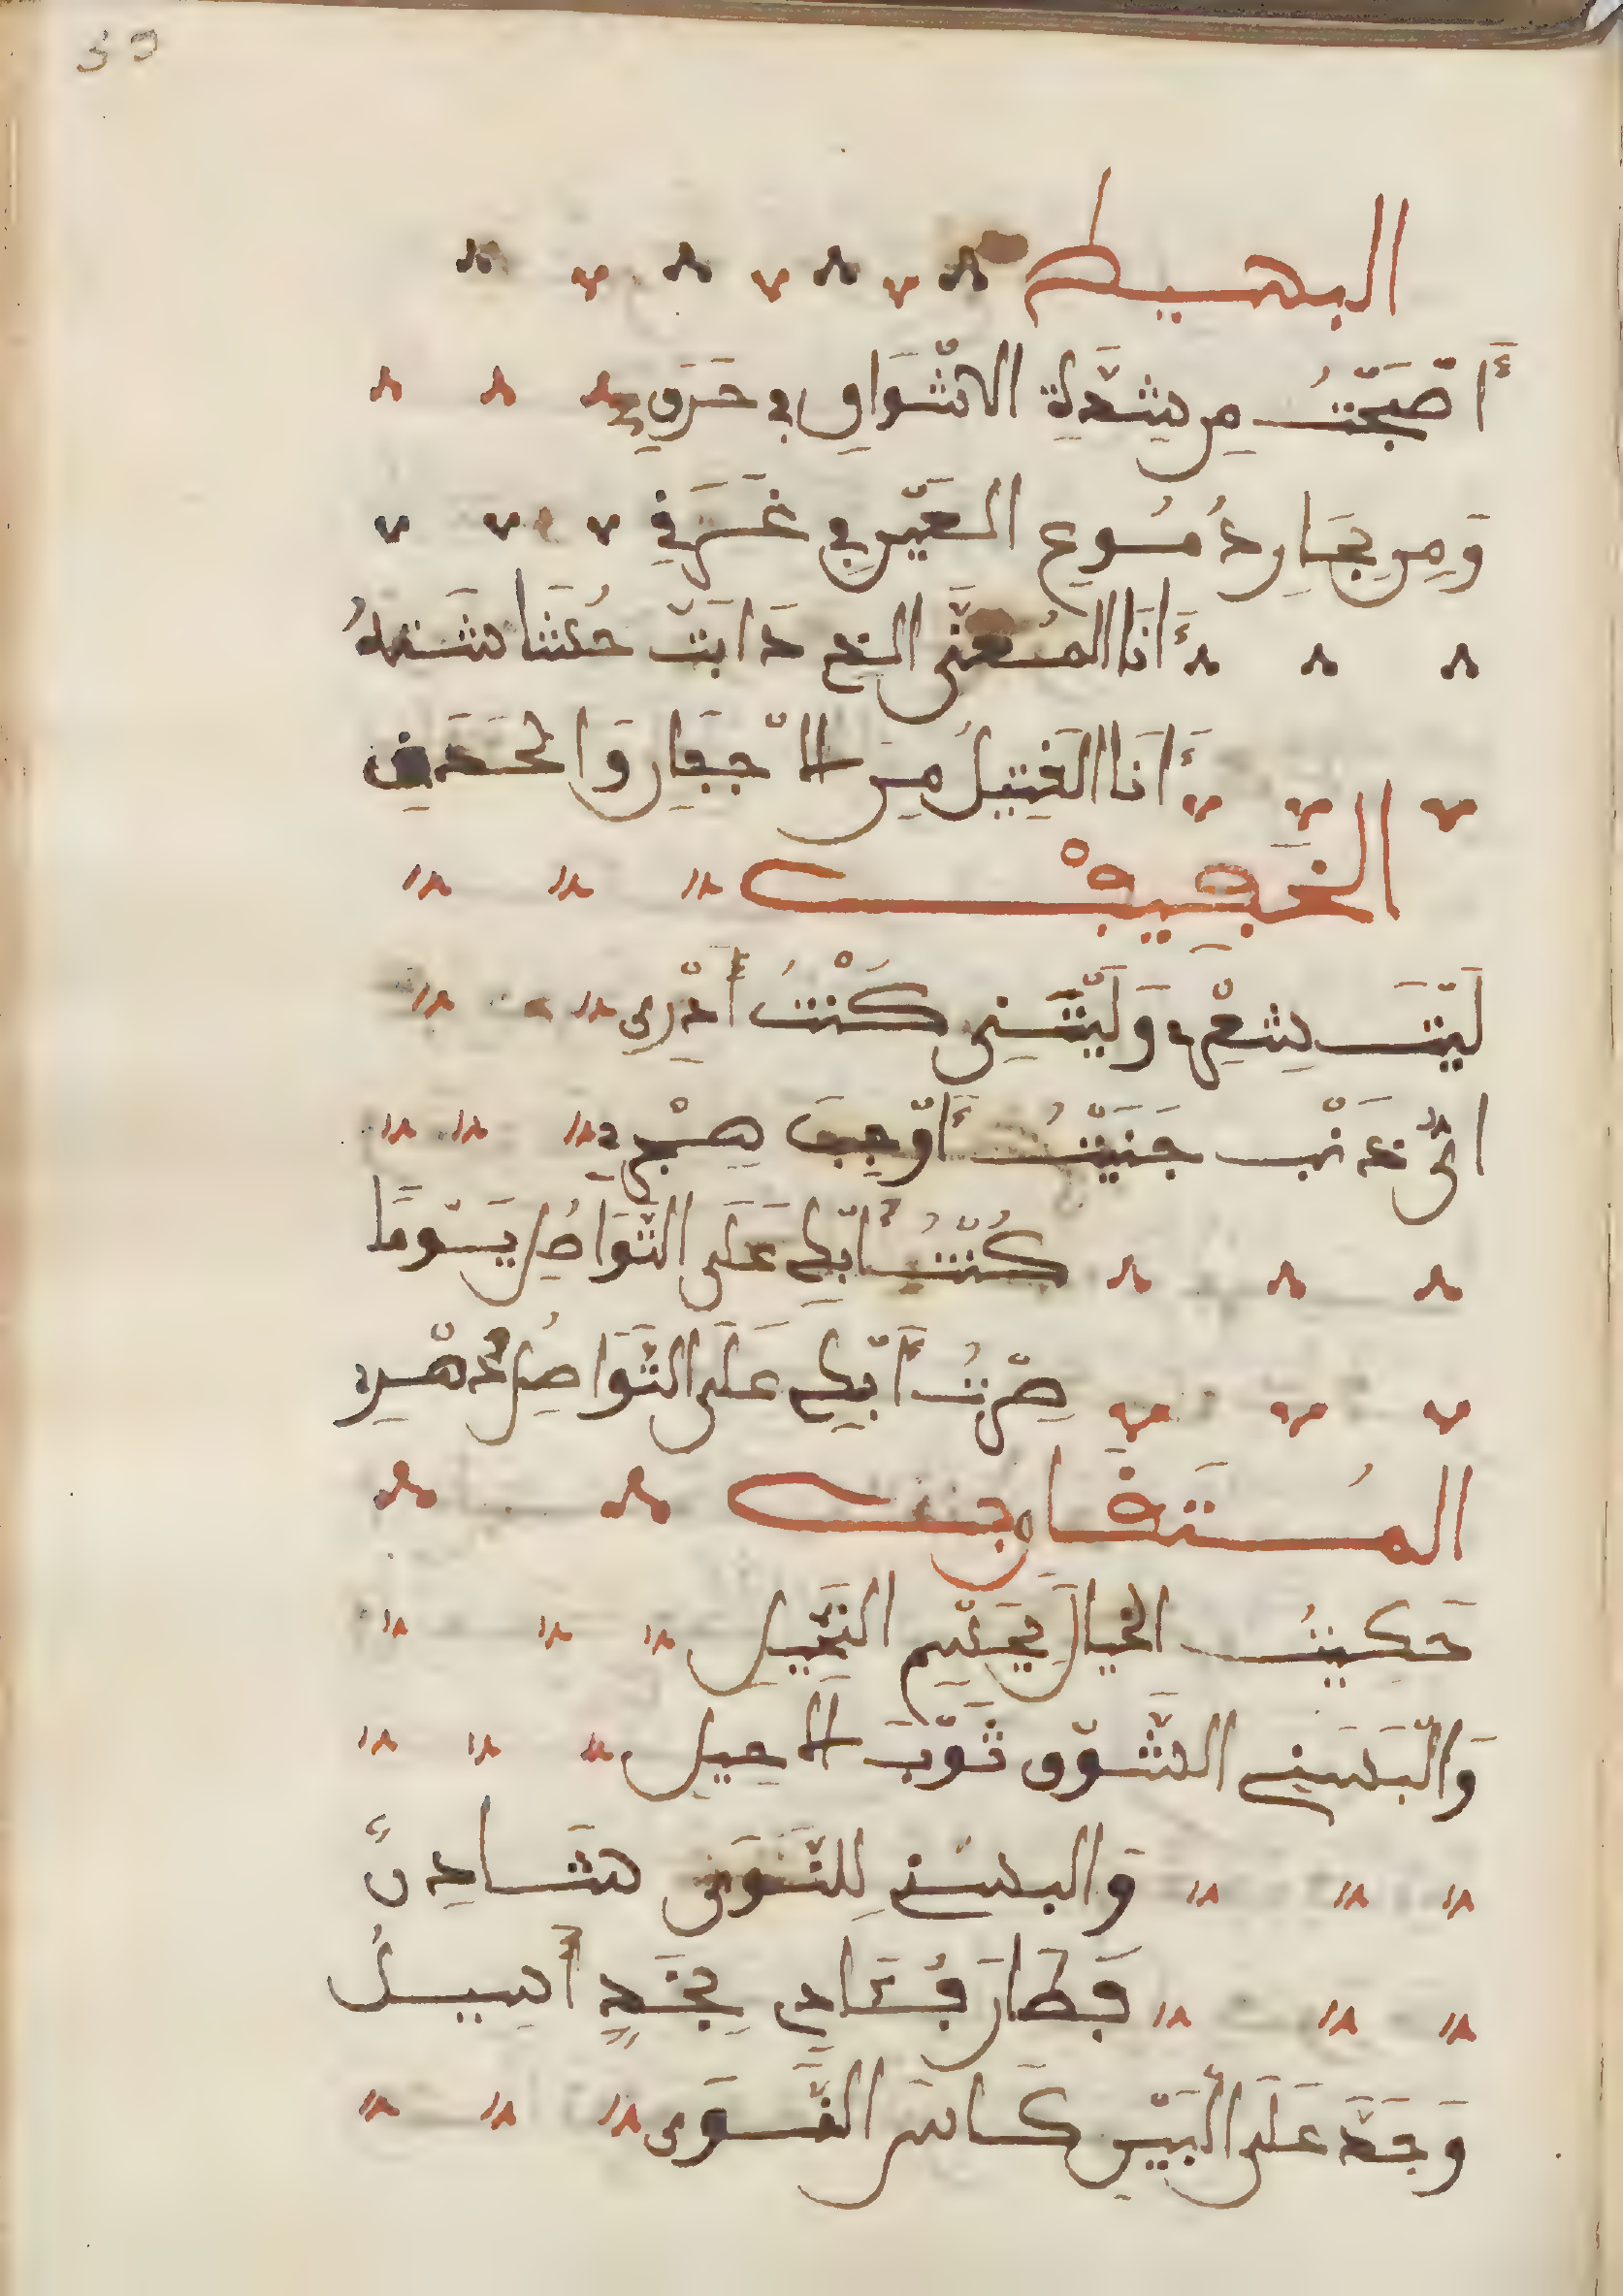 39
البسيط
أَصْبَحْتُ مِن شِدَّةِ الاشْوَاقِ فِي حَرَقِ
وَمِن بِحَارِ دُمُوعِ العَيْنِ فِي غَرَقِ
أَنَا المُعَنَّى الذي ذَابَتْ حُشَاشَتُهُ
أَنَا القَتِيلُ مِنَ الاجْفَانِ وَالحَدَقِ
الخَفِيفْ
لَيْتَ شِعْرِي وَلَيْتَنِي كُنْتُ أَدْرِي
ائُّ ذَنْبٍ جَنَيْتُ أَوْجَبَ هِجْرِي
كُنْتُ أَبْكِي عَلَى التَّوَاصُلِ يَوْمًا
صِرْتُ أَبْكِي عَلَى التَّوَاصُلِ دَهْرِي
المُتَقَارِب
حَكَيْتُ الخَيَالَ بِجَسْمِ النَّحِيلِ
وَالْبَسَنِي الشَّوْق ثَوْبَ الا حيل
وَالبسني لِلنَّوَى شَادِنٌ
فَطَارَ فُؤَادِي بِخَدٍّ أسيلُ
وَجَدَّ عَلَى الْبَيْنِ كَاسَ النَّوَى